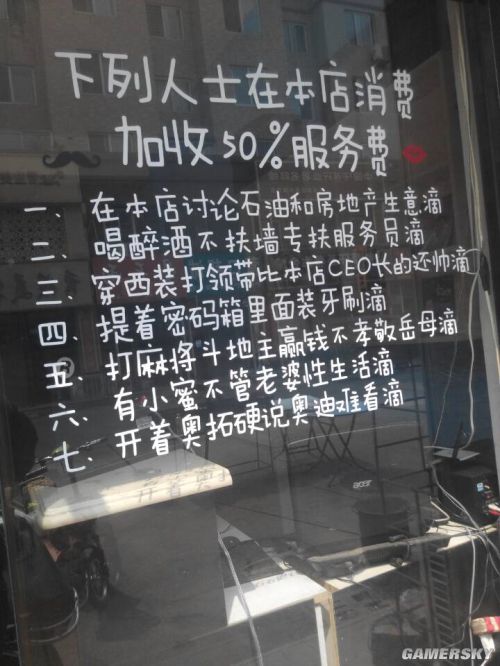 下列人士在本店消费
加收50%服务费
一、在本店讨论石油和房地产生意滴
二、喝醉酒不扶墙专扶服务员滴
三、穿西装打领带比本店CEO长的还帅滴
四、提着密码箱里面装牙刷滴
五、打麻将斗地主赢钱不孝敬岳母滴
六、有小蜜不管老婆性生活滴
七、开着奥拓硬说奥迪难看滴
acer
GAMERSKY